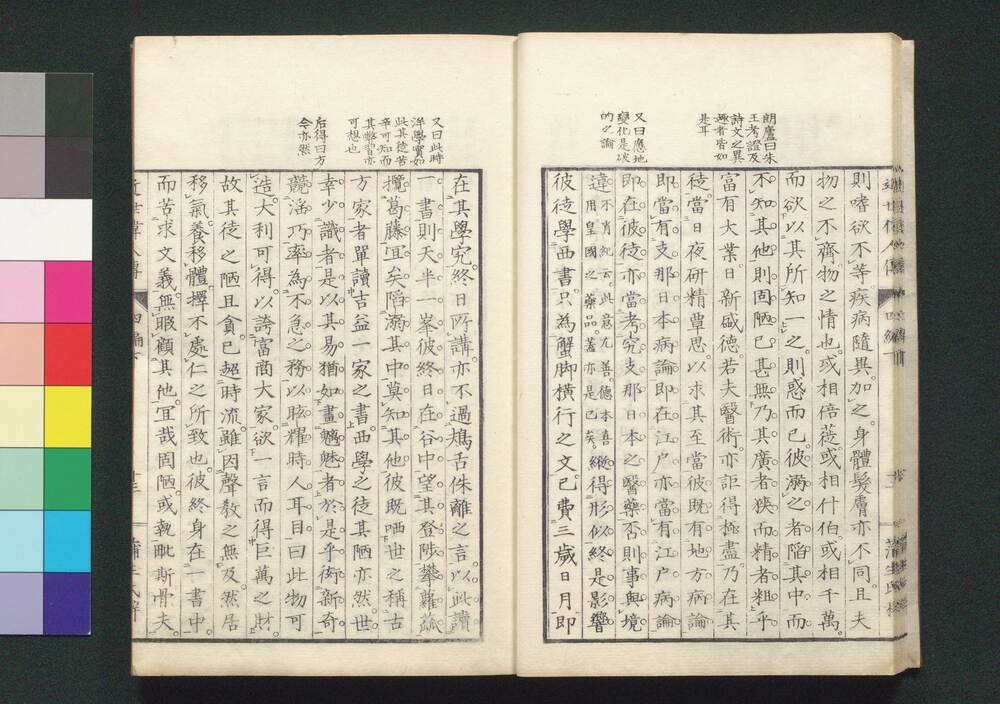 朗廬曰朱
王考證及
詩文之異
趣者皆如
是耳
又曰應地
變化是破
的之論
則嗜欲不等疾病隨異加之身體髮膚亦不同且夫
物之不齊物之情也或相倍蓰或相什伯或相千萬
而欲以其所知一之則惑而已彼溺之者陷其中而
不知其他則固陋已甚無乃其廣者狹而精者粗乎
富有大業日新盛德若夫醫術亦詎得極盡乃在其
徒當日夜研精覃思以求其至當彼既有地方病論
即當有支那日本病論即在江戶亦當有江戶病論
即在彼徒亦當考究支那日本之醫藥否則事與境
違不肖紀云此意尤善德本喜
用皇國之藥品蓋亦是已矣縱得形似終是影響
彼徒學西書只為蟹脚橫行之文已費三歲日月即
又曰此時
洋學實如
此其徒苦
辛可知而
其弊習亦
可想也
后得曰方
今亦然
在其學究終日所講亦不過鴂舌侏離之言以此讀
一書則天半一峯彼終日在谷中望其登陟攀蘿
攬葛藤宜矣陷溺其中莫知其他彼既哂世之稱古
方家者單讀吉益一家之書西學之徒其陋亦然世
幸少識者是以其易猶如畫魑魅者於是乎衒新奇
競淫乃率為不急之務以眩耀時人耳目曰此物可
造大利可得以誇富商大家欲一言而得巨萬之財
故其徒之陋且貪已超時流雖因聲教之無及然居
移氣養移體擇不處仁之所致也彼終身在一書中
而苦求文義無暇顧其他宜哉固陋或執毗斯骨夫